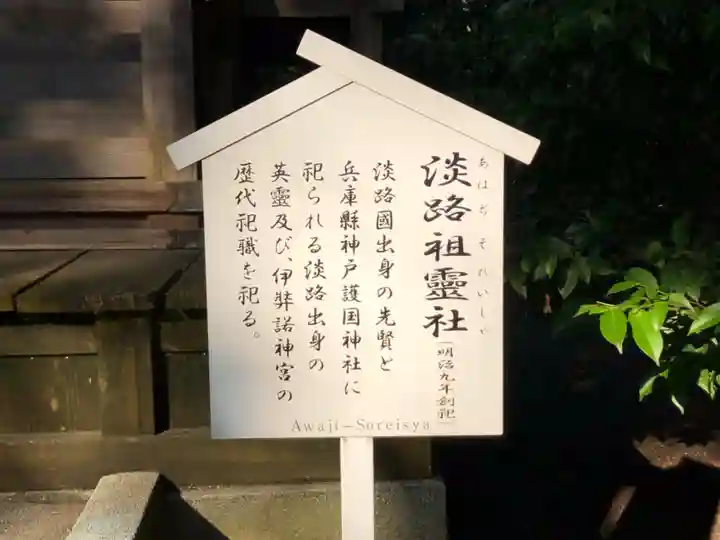 淡路祖靈社
あはぢそれいしや
「明治九年創祀」
淡路國出身の先賢と
兵庫縣神戸護国神社に
祀られる淡路出身の
英靈及び、伊弉諾神宮の
歴代祀職を祀る。
Awaji-Soreisya